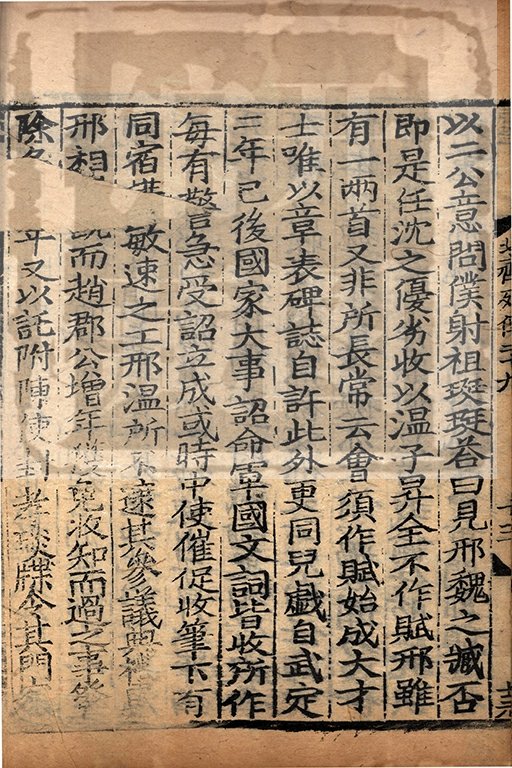 以二公意問僕射祖珽珽荅曰見邢魏之臧否
即是任沈之優劣收以溫子昇全不作賦邢雖
有一兩首又非所長常云會須作賦始成大才
士唯以章表碑誌自許此外更同兒戲自武定
二年已後國家大事詔命軍國文詞皆收所作
每有警急受詔立成或時中使催促收筆下有
同宿敏速之工邢溫所不逮其參議典禮與
邢相既而趙郡公增年獲免收知而過之事發
除年又以託附陳使封孝琰牒令其門客